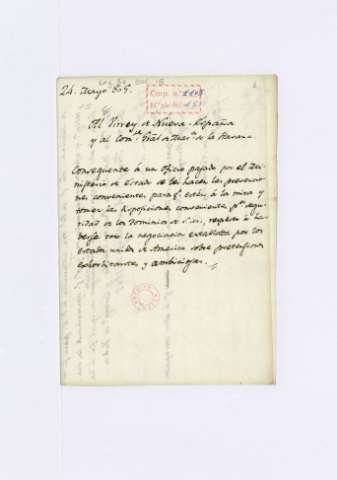 24. Mayo 805.
Al Virrey de Nueva-España
y al Com.te Gral de Mar.a de la Havana.
Consequente á un oficio pasado por el Mi-
nisterio de Estado se les hacen las prevencio-
nes convenientes para q.e estén á la mira y
tomen las disposiciones convenientes p.a segu-
ridad de los Dominios de S.M., respecto á ha-
berse roto la negociacion entablada por los
estados unidos de America sobre pretensiones
exhorbitantes y ambiciosas.